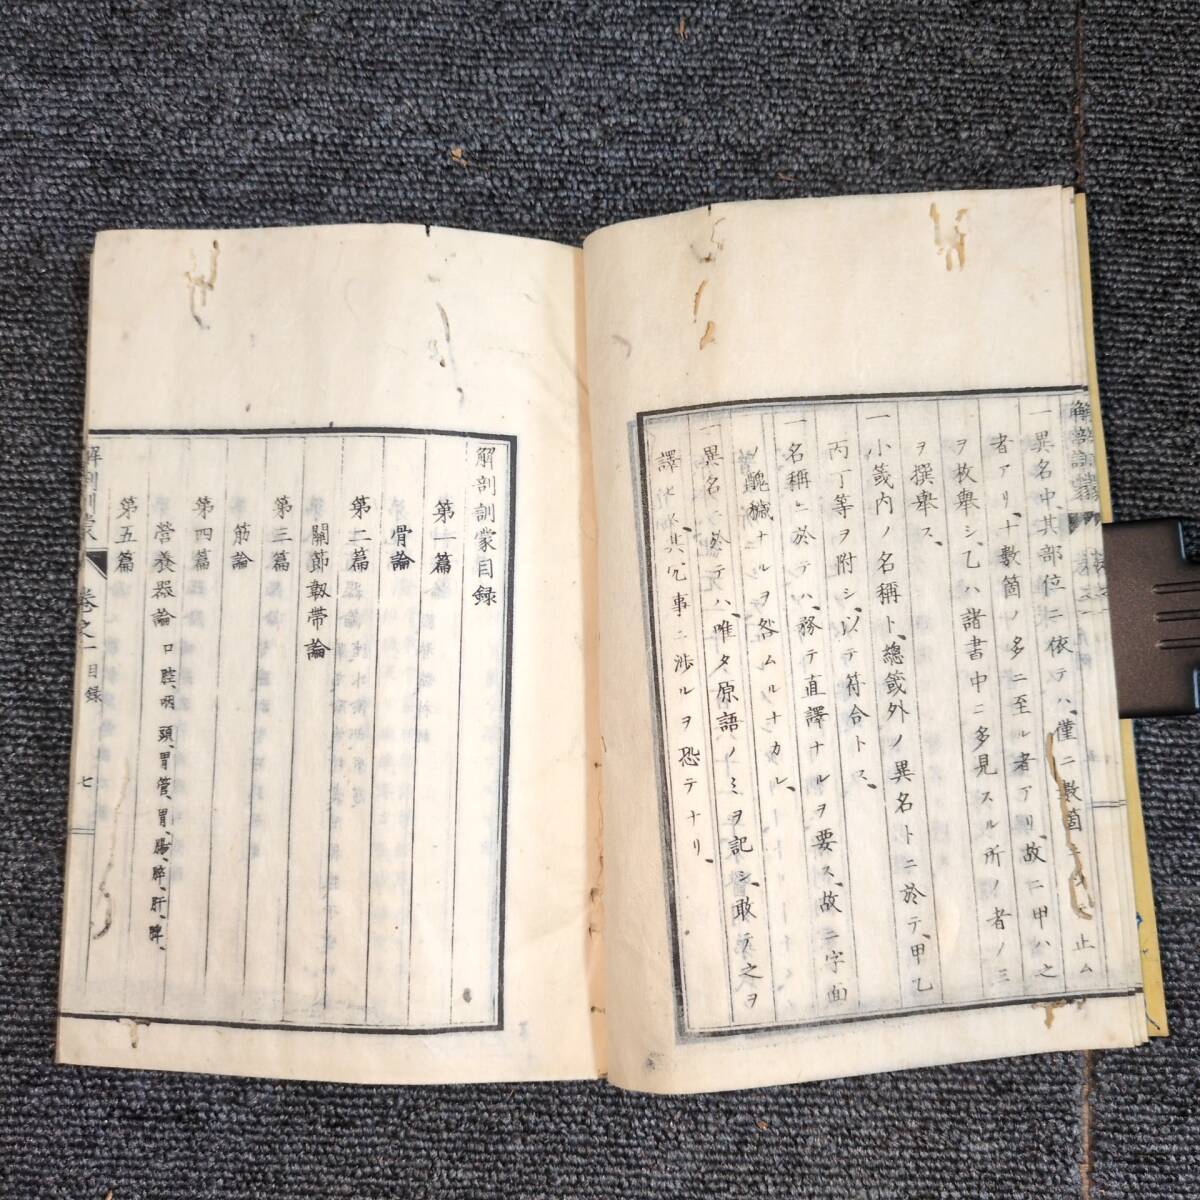 一異名中、其部位ニ依テハ、僅ニ數箇ニ 止ム
者アリ、十數箇ノ多ニ至ル者アリ、故ニ甲ハ之
ヲ枚舉シ、乙ハ諸書中ニ多見スル所ノ者ノ三
ヲ撰舉ス、
一小篏内ノ名稱ト、總篏外ノ異名トニ於テ、甲乙
丙丁等ヲ附シ、以テ符合トス、
一名稱ニ於テハ、務テ直譯ナルヲ要ス、故ニ字面
ノ醜槭ナルヲ咎ムルナカル、
一異名ニ於テハ、唯タ原語ノミヲ記シ、敢テ之ヲ
譯 其冗事ニ涉ルヲ恐テナリ、
解剖訓蒙目録
第一篇
骨論
第二篇
關節靱帶論
第三篇
筋論
第四篇
營養器論 口腔、咽頭、胃管、胃、腸、膵、肝、脾、
第五篇
解剖訓蒙 卷之一目録 七